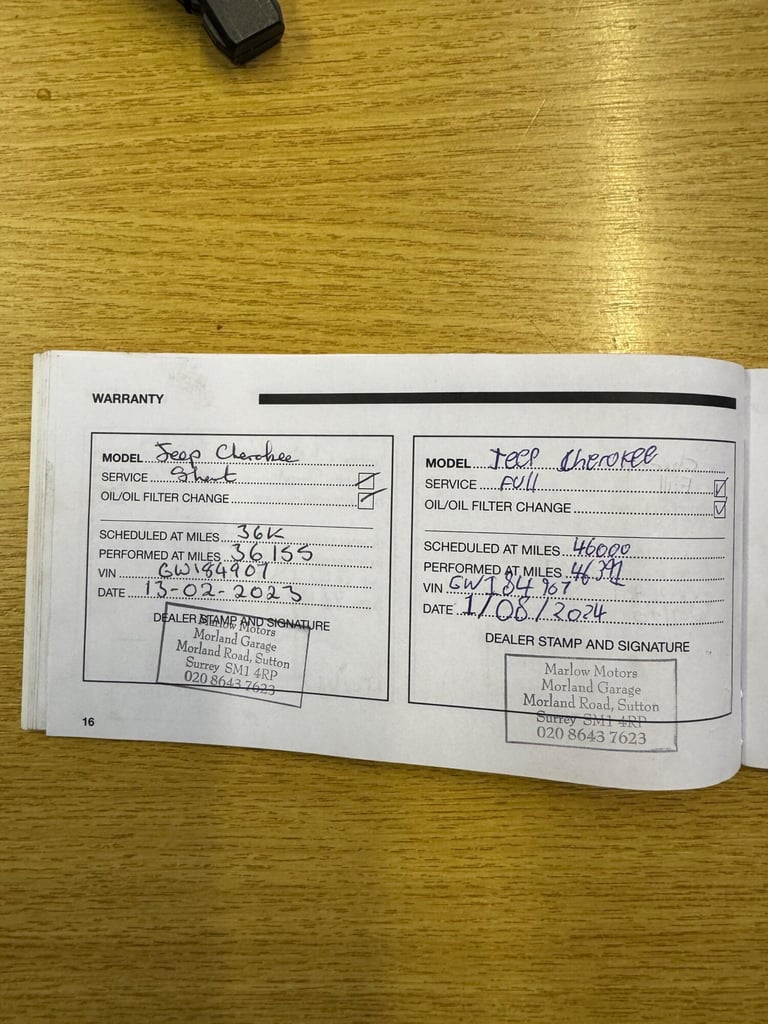 WARRANTY
MODEL Jeep Cherokee
SERVICE Short
OIL/OIL FILTER CHANGE
SCHEDULED AT MILES 36K
PERFORMED AT MILES 36,155
VIN GW184907
DATE 13-02-2023
DEALER STAMP AND SIGNATURE
Marlow Motors
Morland Garage
Morland Road, Sutton
Surrey SM1 4RP
020 8643 7623
16
MODEL Jeep Cherokee
SERVICE FULL
OIL/OIL FILTER CHANGE
SCHEDULED AT MILES 46000
PERFORMED AT MILES
VIN GW184967
DATE 1/08/2024
DEALER STAMP AND SIGNATURE
Marlow Motors
Morland Garage
Morland Road, Sutton
Surrey SM1 4RP
020 8643 7623